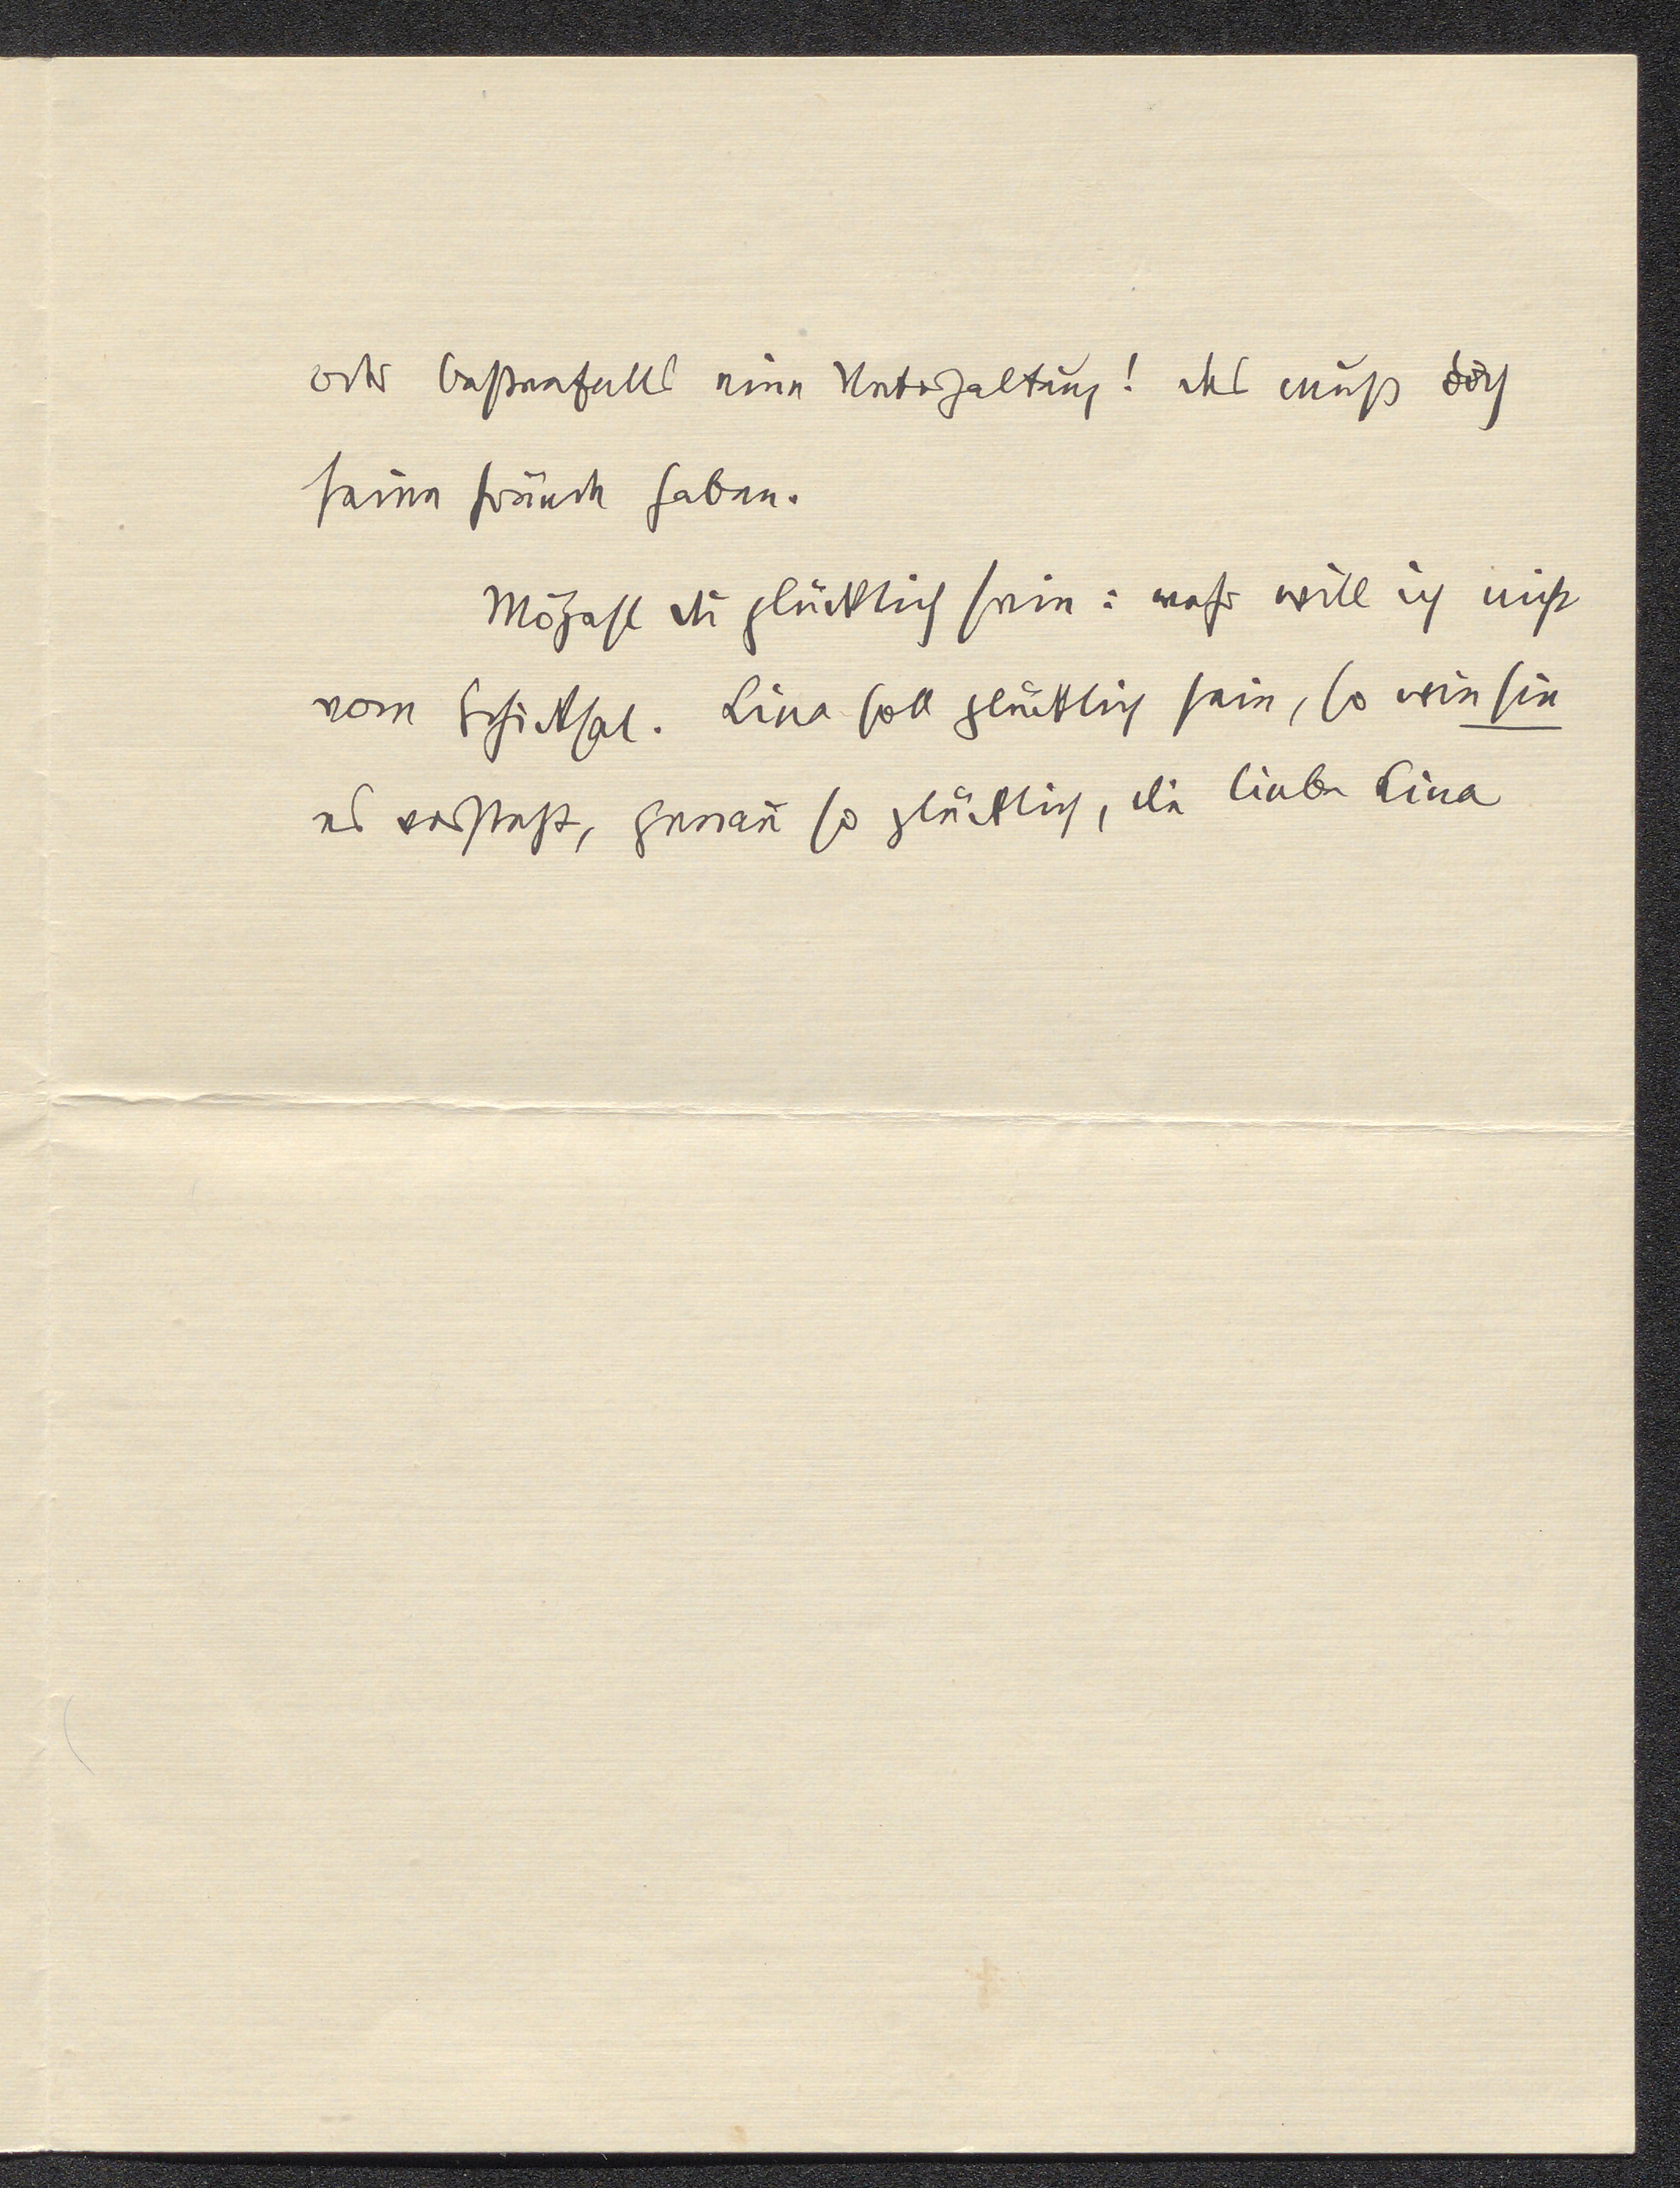 oder bestenfalls eine Unterhaltung! das muß doch
seine Gründe haben.
Mögest du glücklich sein: mehr will ich nicht
vom Schicksal. Lina soll glücklich sein, so wie sie
es versteht, genau so glücklich, die liebe Lina